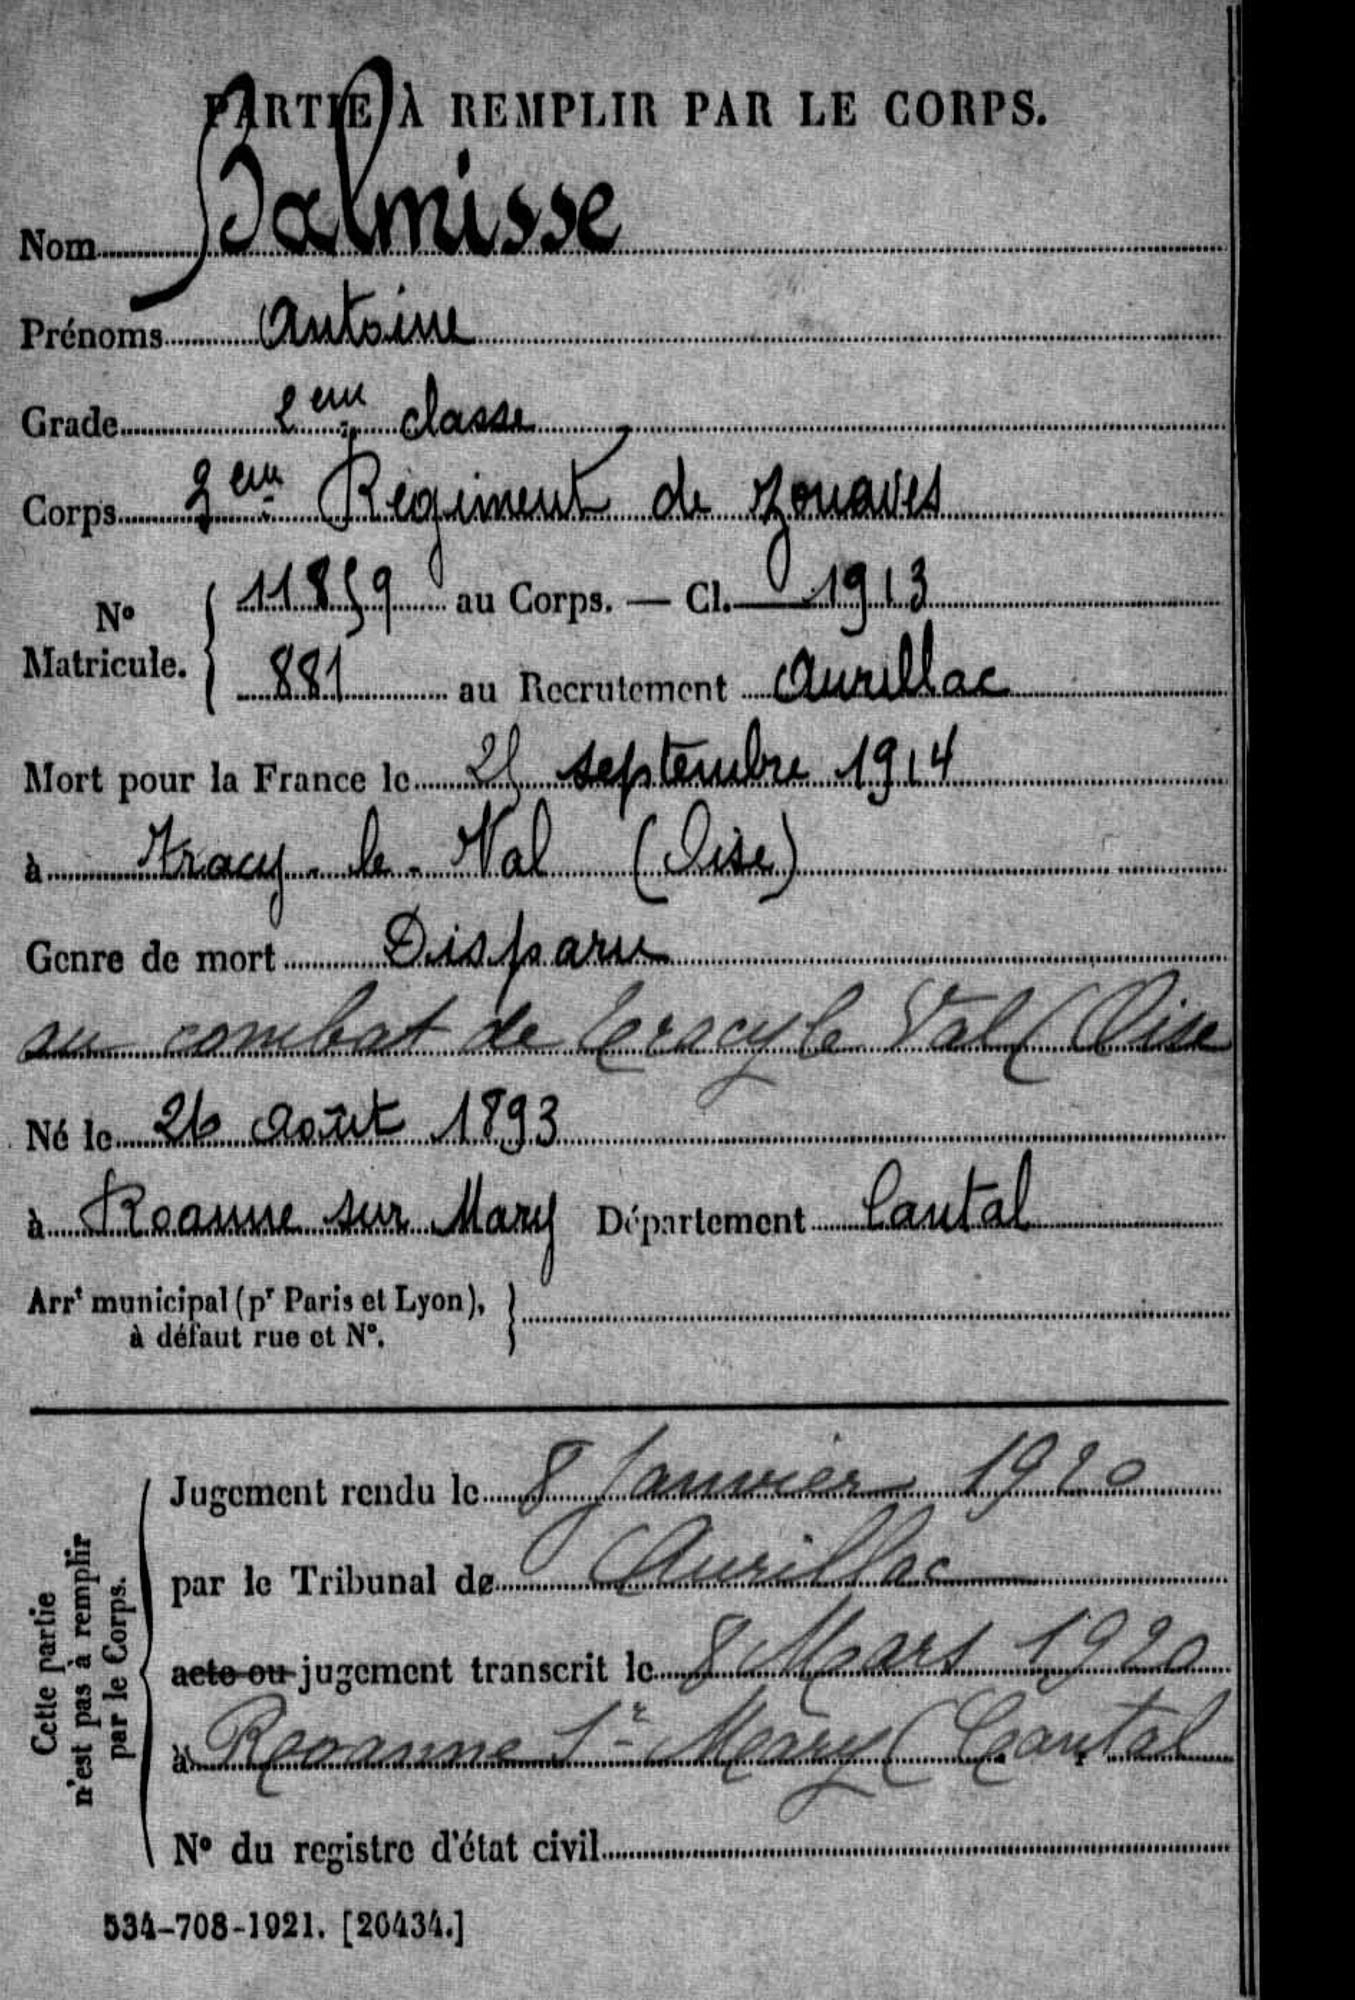 PARTIE À REMPLIR PAR LE CORPS.
Nom Balmisse
Prénoms Antoine
Grade 2eme classe
Corps 2eme Régiment de Zouaves
N° Matricule. { 11859 au Corps. — Cl. 1913
881 au Recrutement Aurillac
Mort pour la France le 25 septembre 1914
à Tracy-le-Val (Oise)
Genre de mort Disparu
au combat de Tracy le Val (Oise
Né le 26 Août 1893
à Roanne sur Mary Département Cantal
Arrt municipal (pr Paris et Lyon), }
à défaut rue et N°.
Cette partie n'est pas à remplir par le Corps.
Jugement rendu le 8 Janvier 1920
par le Tribunal de Aurillac
acte ou jugement transcrit le 8 Mars 1920
à Roanne St Mary (Cantal
N° du registre d'état civil
534-708-1921. [26434.]